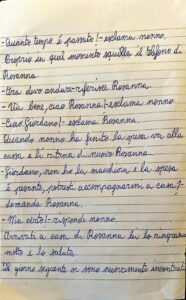 -Quanto tempo è passato!-esclama nonno.
Proprio in quel momento squilla il telefono di
Rosanna.
-Ora devo andare-riferisce Rosanna.
-Va bene, ciao Rosanna!-esclama nonno.
-Ciao Giordano!-esclama Rosanna.
Quando nonno ha finito la spesa va alla
cassa e lì ritrova di nuovo Rosanna.
-Giordano, non ho la macchina, e la spesa
è pesante, potresti accompagnarmi a casa?-
domanda Rosanna.
-Ma certo!-risponde nonno.
Arrivati a casa di Rosanna lei lo ringrazia
molto e lo saluta.
Il giorno seguente si sono nuovamente incontrati